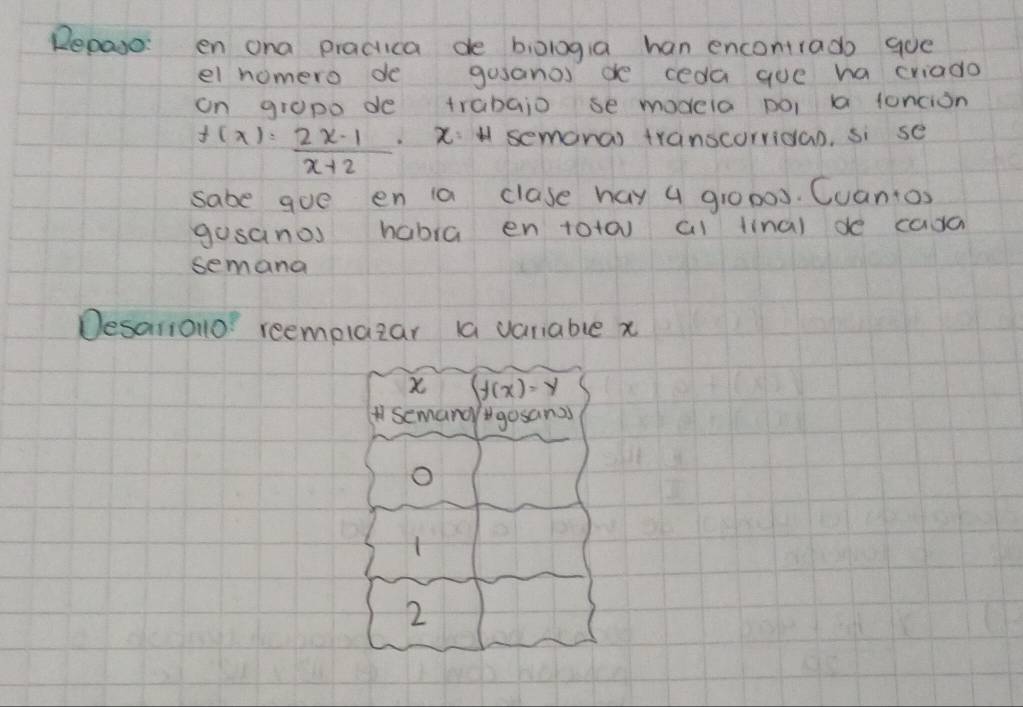 Repaso: en una practica de biologia han encontrado que
el numero de gusanos de ceda que ha criado
un grupo de trabajo se modela por la funcion
f(x) = 2x-1 / x+2 . x = # semanas transcurridas. si se
sabe que en la clase hay 4 grupos. Cuantos
gusanos habra en total al final de cada
semana
Desarrollo: reemplazar la variable x
x f(x)=y
# semana #gusanos
0
1
2